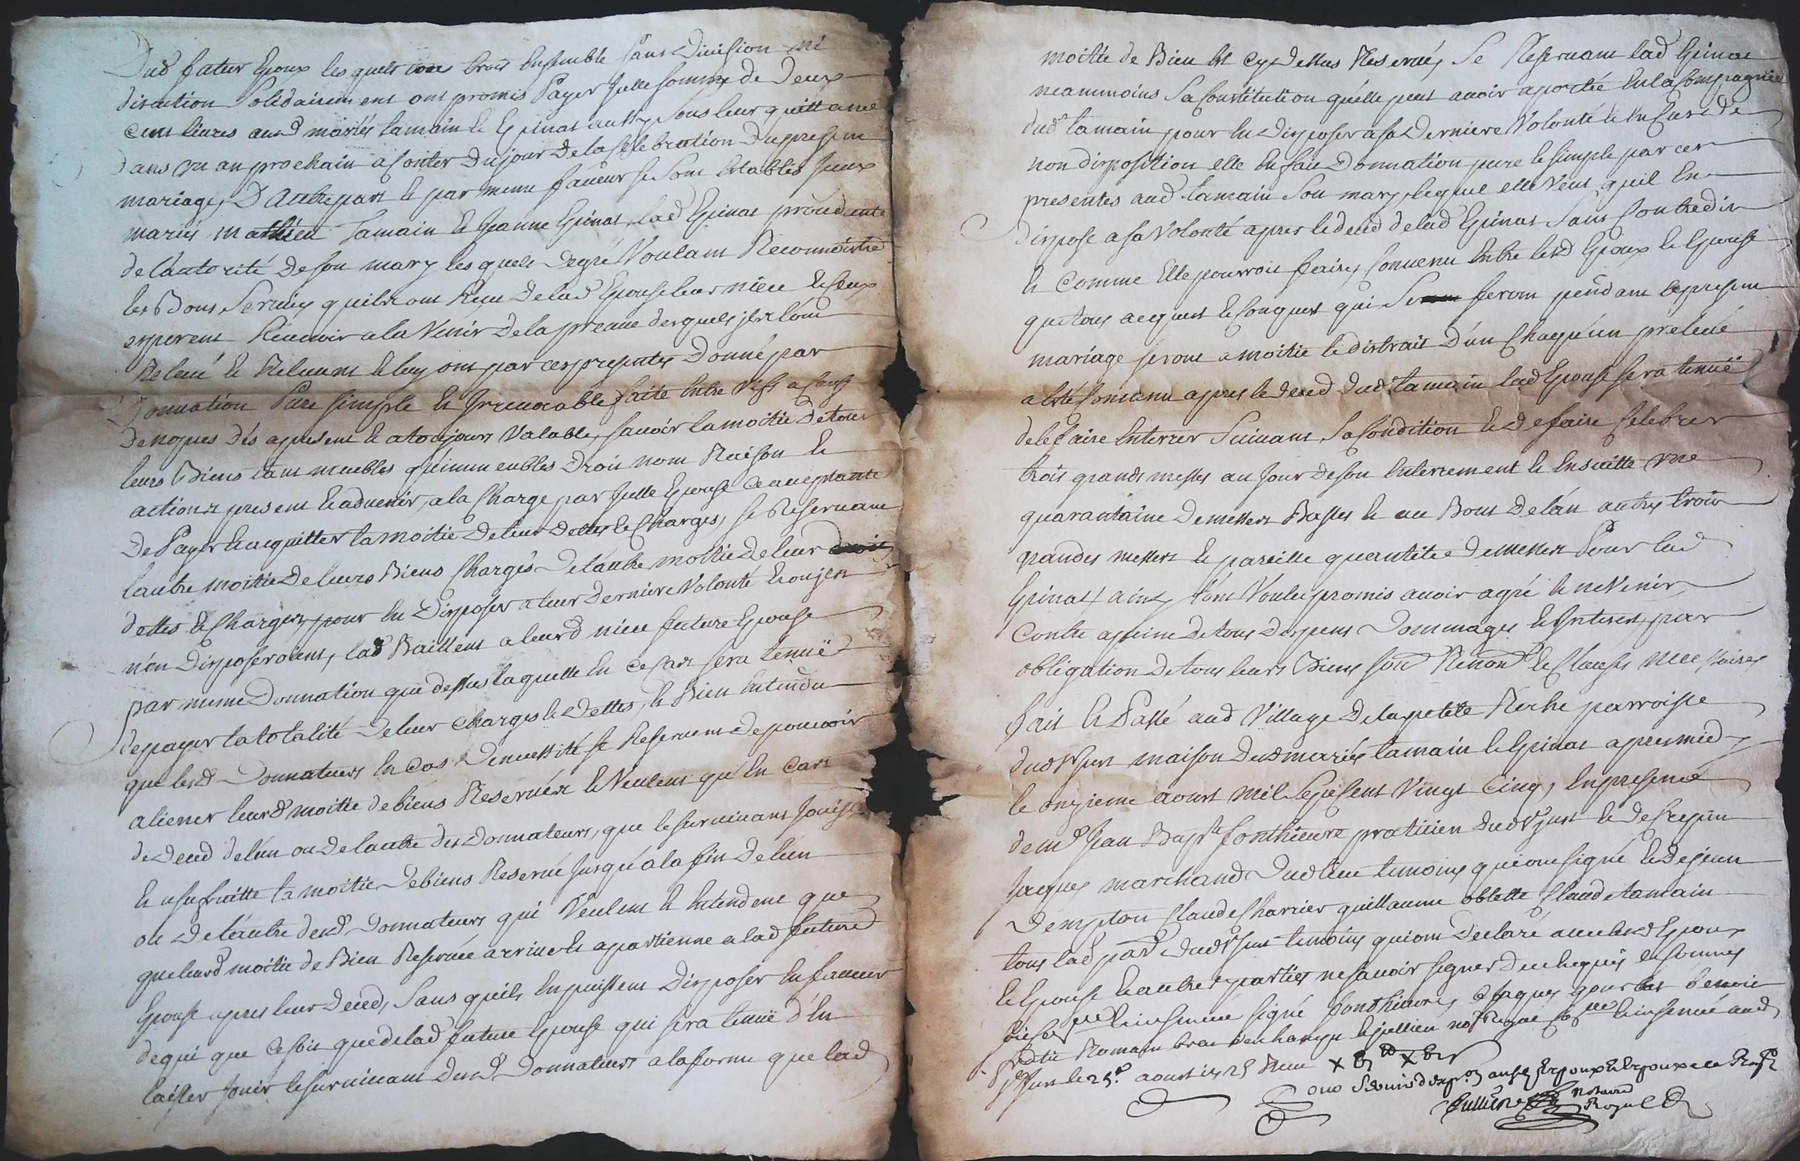 Dud futur Epoux lesquels tous trois ensemble sans division ni
discution solidairement ont promis Payer Jcelle somme de deux
cens livres ausd mariés tamain et Epinat au sous leur quittance
dans un an prochain a conter du jour de la celebration du present
mariage, D'autre part et par meme faveur se sont establis Jceux
mariés mathieu Tamain et Jeanne Epinat, lad Epinat procedante
de l'autorité de son mary lesquels de gré Voulant Reconnoistre
les Bons services quils ont Recu de lad Epouse leur niece et ceux
esperent Recevoir a la Venir de la preuve desquels ils l'ont
Relevé et Relevent et luy ont par ces presentes Donné par
Donnation Pure simple et Jrrevocable faite entre vifs a cause
de nopces dés apresent et a toujours Valable, savoir la moitié de tous
leurs Biens tant meubles qu'immeubles droit nom Raison et
actions present et advenir, a la Charge par Jcelle Epouse ce acceptante
de Payer et acquitter la moitié de leur dettes et Charges, se Reservant
l'autre moitié de leurs Biens Chargés de l'autre moitié de leur
dettes et Charges, pour en Disposer a leur derniere Volonté et ou jcex
n'en Disposeroient, lad Baillent a leurd niece future Epouse
par meme Donnation que dessus laquelle en ce cas sera tenuë
de payer la totalité de leur Charges et dettes, et Bien entendu
que lesd Donnateurs en cas de necessité se Reservent de pouvoir
aliener leurd moitié de biens Reservée et Veulent qu'en cas
de deced de l'un ou de l'autre des Donnateurs, que le survivant Jouisse
en usufruitte la moitié de biens Reservé Jusqu'a la fin de l'un
ou de l'autre desd Donnateurs qui Veulent et entendent que
que leurd moitié de Bien Reservée arrive et apartienne a lad future
Epouse apres leur deced, sans quils en puissent Disposer en faveur
de qui que ce soit que de lad future Epouse qui sera tenuë d'en
laisser Jouir le survivant desd Donnateurs a la forme que lad
moitié de Bien est cy dessus Reservés, se Reservant lad Epinat
neammoins sa Constitution qu'elle peut avoir aportée en la Compagnie
dud tamain pour en disposer a sa derniere Volonté et en cas de
non disposition elle en fait Donnation pure et simple par ces
presentes aud Tamain son mary, lequel elle Veut quil en
dispose a sa Volonté apres le deced de lad Epinat sans Contredit
et comme Elle pourroit faire, Convenu entre lesd Epoux et Epouse
que tous acquest et Conquest qui seront feront pendant le present
mariage seront a moitié et distrait d'un Chaqu'un prelevé
a esté Convenu apres le deced dud tamain lad Epouse sera tenuë
de le faire enterrer suivant sa Condition et de faire Celebrer
trois grandes messes au Jour de son enterrement et ensuitte une
quarantaine de messes Basses et au Bout de l'an autres trois
grandes messes et pareille quantitée de messes Pour lad
Epinat, ainsy l'ont Voulu promis avoir agré et ne Venir
Contre a peine de tous despens Dommages et Interest, par
obligation de tous leurs Biens soum Renonon et Clauses necessaires
fait et Passé aud Village de la petite Roche parroisse
dud st Just maison dud mariés tamain et Epinat apres midy
le onzieme aoust mil sept cent Vingt Cinq, en presence
de me Jean Baple Ponthieure praticien dud st Just et de Crepin
Jacques marchand dud lieu temoins qui ont signé et de jean
Dempton Claude Charrier guillaume oblette Claude tamain
tous lad parr dud st Just temoins qui ont declaré avec lesd Epoux
et Epouse et autre parties ne savoir signer de ce requis et sommés
signé Ponthieure, Jaques
notre Royal
st Just le 25e aoust 1725 Recu
Notaire
Royal